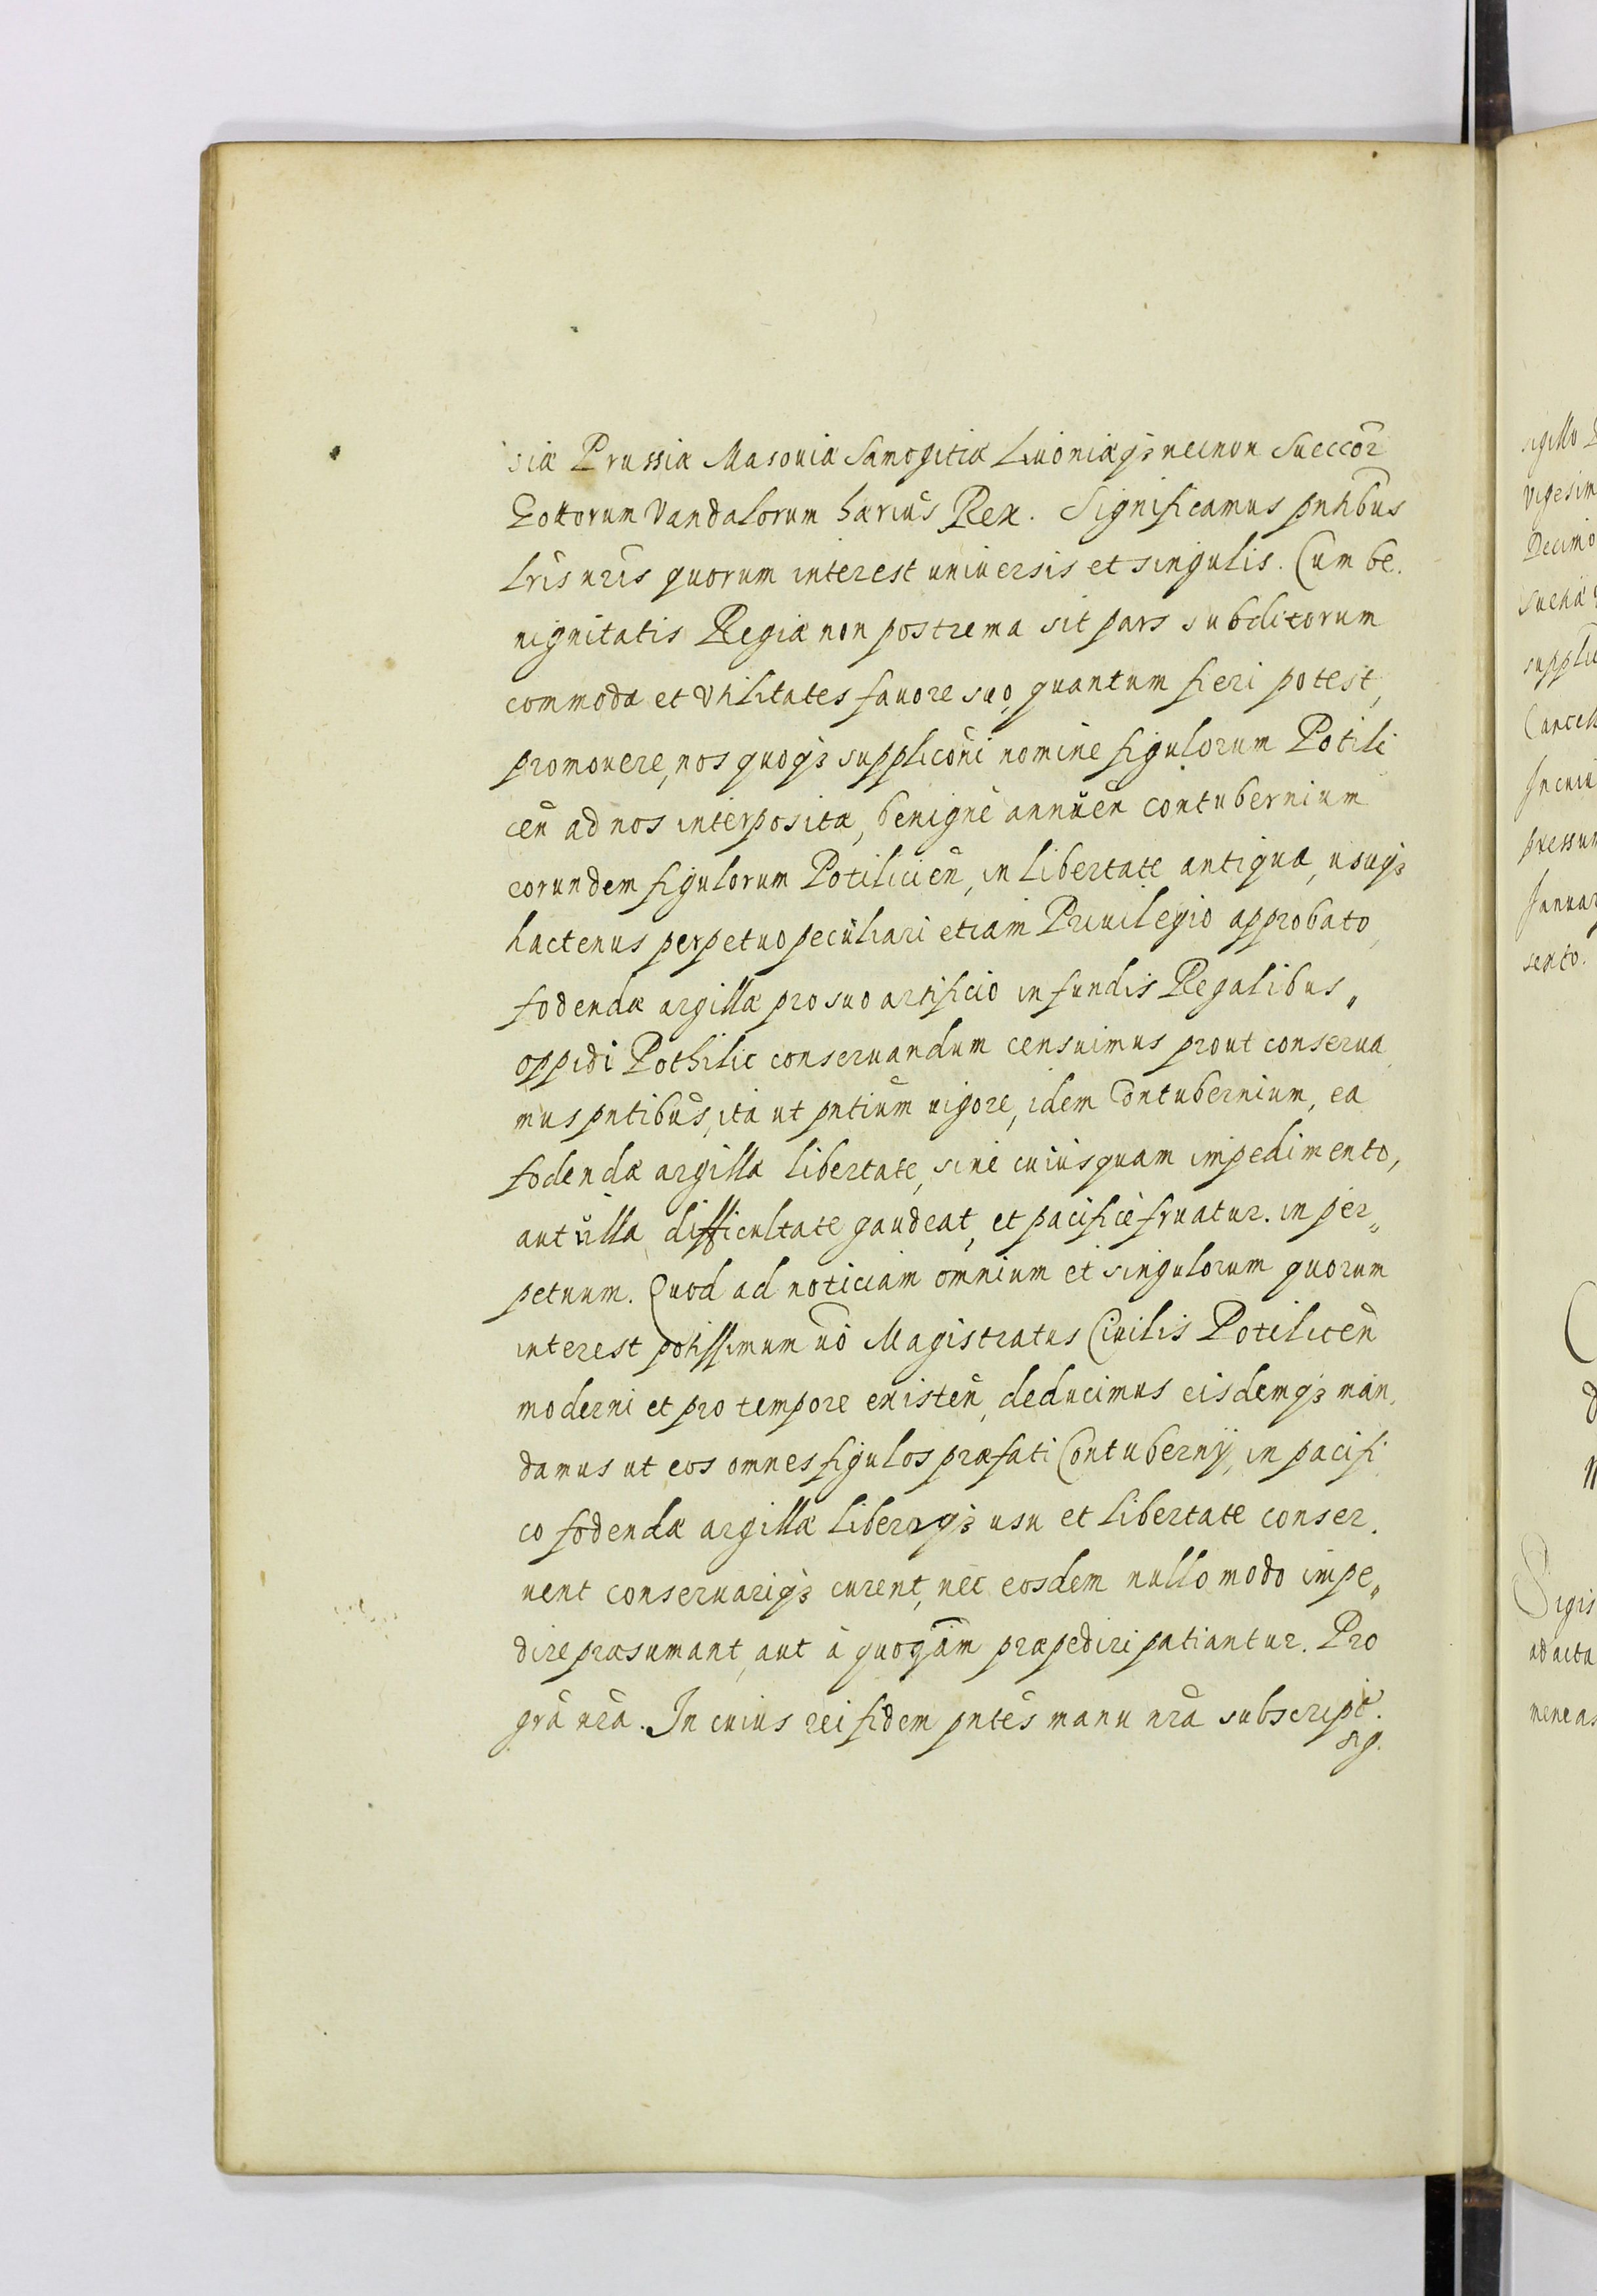 siæ Prussiæ Masouiæ Samogitiæ Liuoniæq₃ necnon Sueccor̃
Gottorum Vandalorum hærius̃ Rex. Significamus pñtibus
Lris̃ nris̃ quorum interest uniuersis et singulis. Cum be.
nignitatis Regiæ non postrema sit pars subditorum
commoda et Vtilitates fauore suo, quantum fieri potest,
promouere, nos quoq₃ supplicõni nomine figulorum Potili
ceñ ad nos interpositæ, benigne annueñ contubernium
eorundem figulorum Potilicieñ, in libertate antiqua, usuq₃
hactenus perpetuo peculiari etiam Priuilegio approbato,
fodendæ argillæ pro suo artificio in fundis Regalibus„
oppidi Pothilic conseruandum censuimus prout conserua
mus pñtibus, ita ut pñtium uigore, idem Contubernium, ea
fodendæ argillæ libertate, sine cuiusquam impedimento,
aut ulla difficultate gaudeat, et pacificè fruatur. in per„
petuum. Quod ad noticiam omnium et singulorum quorum
interest potissimum uõ Magistratus Ciuilis Potiliceñ
moderni et pro tempore existeñ, deducimus eisdemq₃ man,
damus ut eos omnes figulos præfati Contubernij, in pacifi
co fodendæ argillæ liberoq₃ usu et libertate conser.
uent conseruariq₃ curent, nec eosdem nullo modo impe„
dire præsumant, aut à quoq̃am præpediri patiantur. Pro
grã nrã. In cuius rei fidem pñtes manu nrã subscripẽ.
sig.
sigillo
vigesim
Decimo
Sueciæ
supplic
Cancell
In cuiu
pressum
Januar
sexto.
Sigis
ad acta